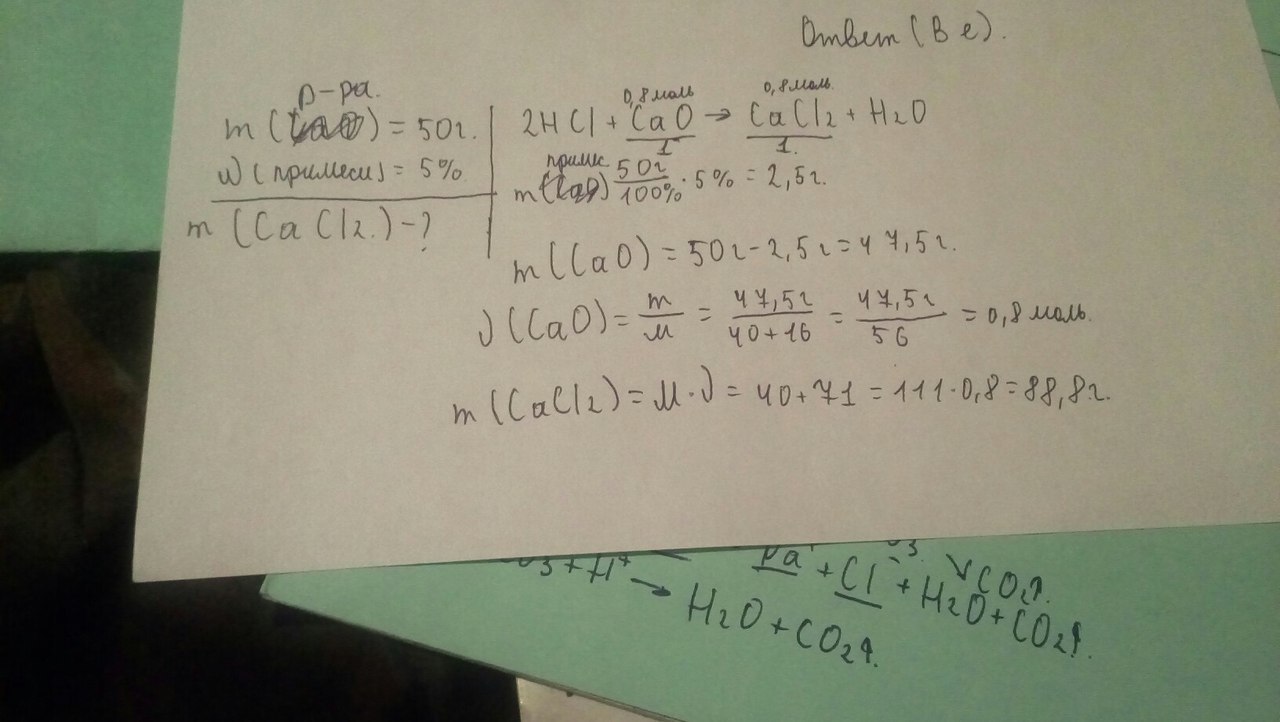 Ответ (В е).
р-ра.
m ( ) = 50г.
ω (примеси) = 5%
m (CaCl2.) - ?
0,8 моль 0,8 моль
2HCl + CaO → CaCl2 + H2O
1 1.
примс
m( ) 50г/100% · 5% = 2,5г.
m (CaO) = 50г - 2,5г = 47,5г.
ν (CaO) = m/M = 47,5г/40+16 = 47,5г/56 = 0,8 моль.
m (CaCl2) = M · ν = 40+71 = 111 · 0,8 = 88,8г.
3 + H+ → + Cl + H2O + CO2↑.
CO2↑.
H2O + CO2↑.